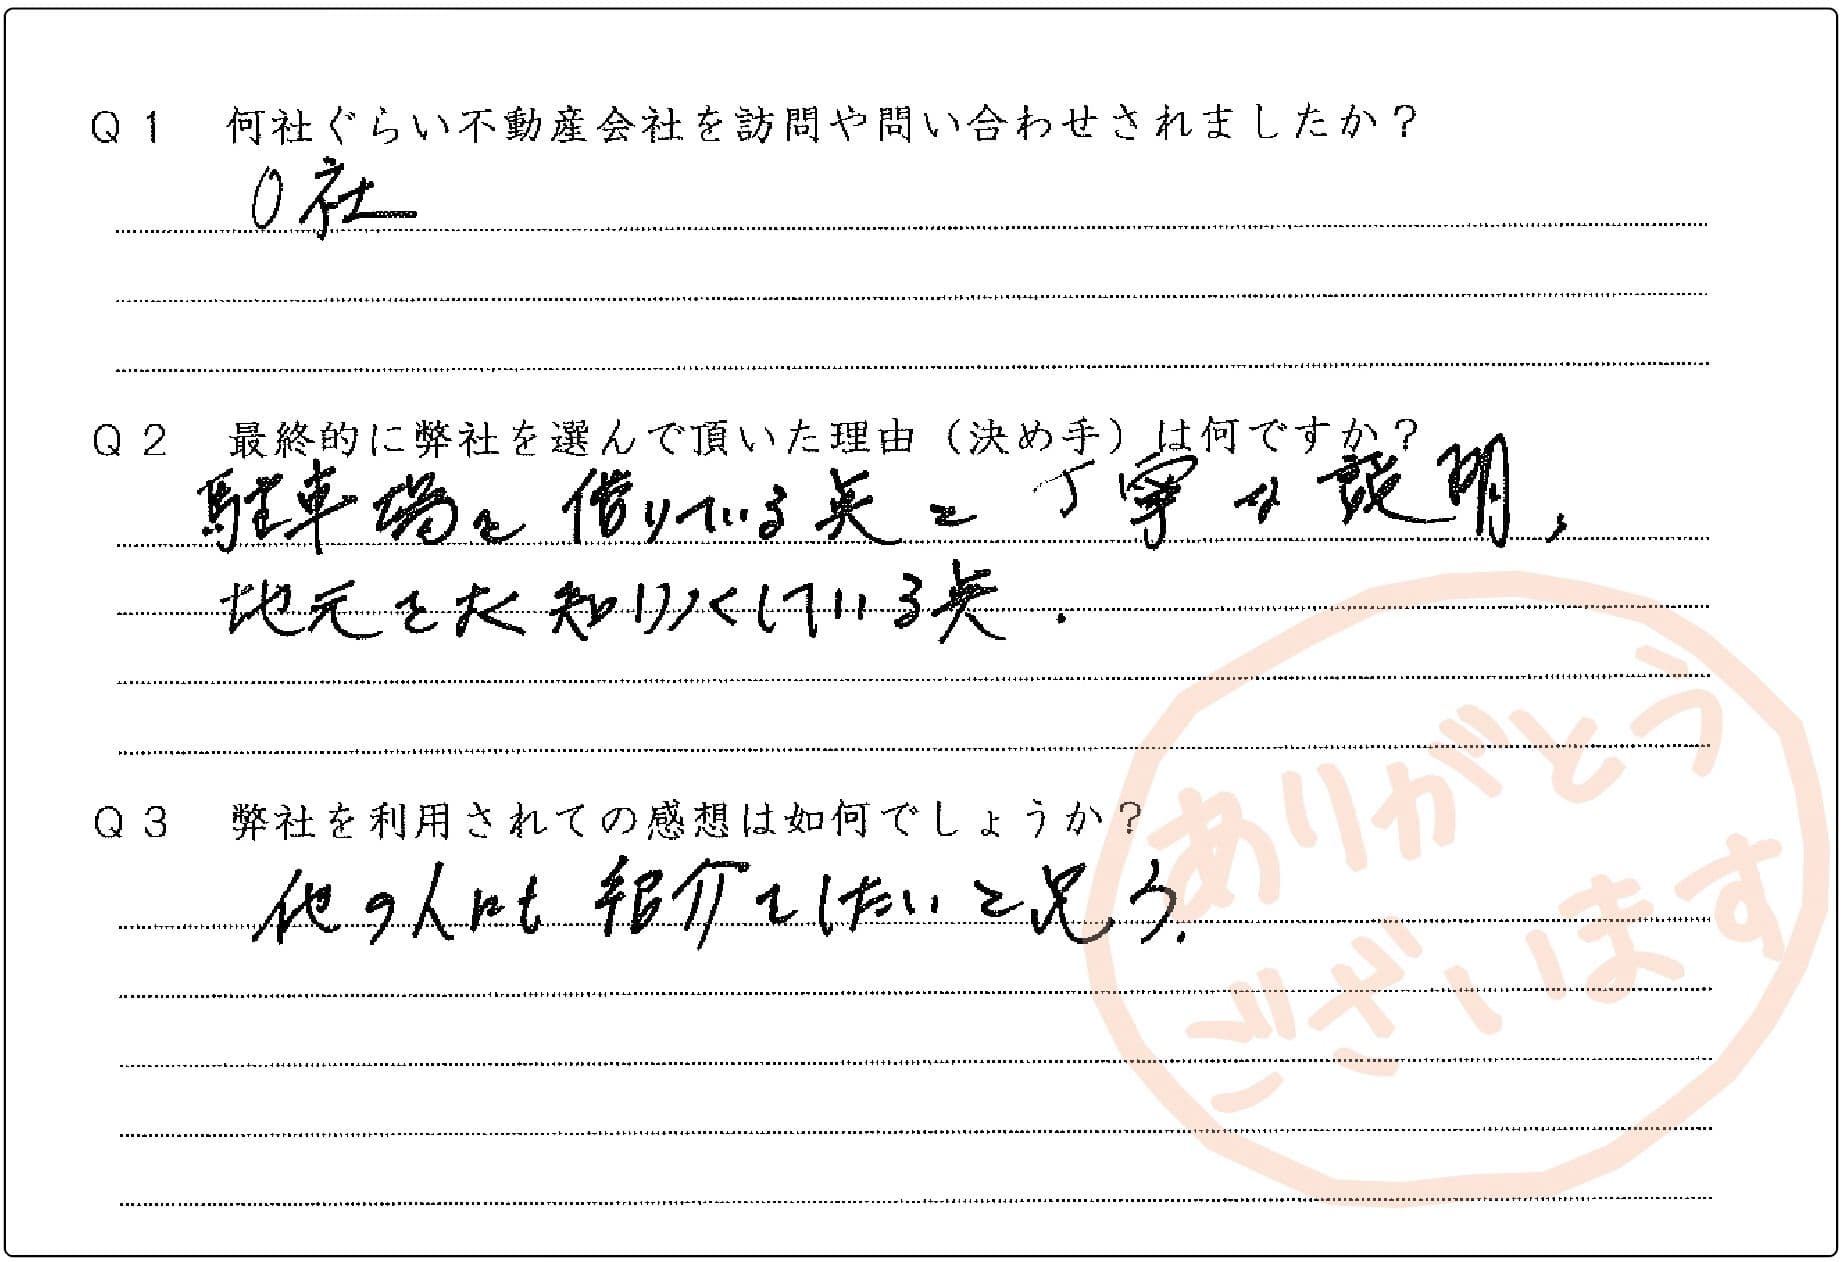 Q1 何社ぐらい不動産会社を訪問や問い合わせされましたか?
0社
Q2 最終的に弊社を選んで頂いた理由(決め手)は何ですか?
駐車場を借りている点と丁寧な説明、
地元をよく知りつくしている点.
Q3 弊社を利用されての感想は如何でしょうか?
他の人にも紹介をしたいと思う.
ありがとう
ございます